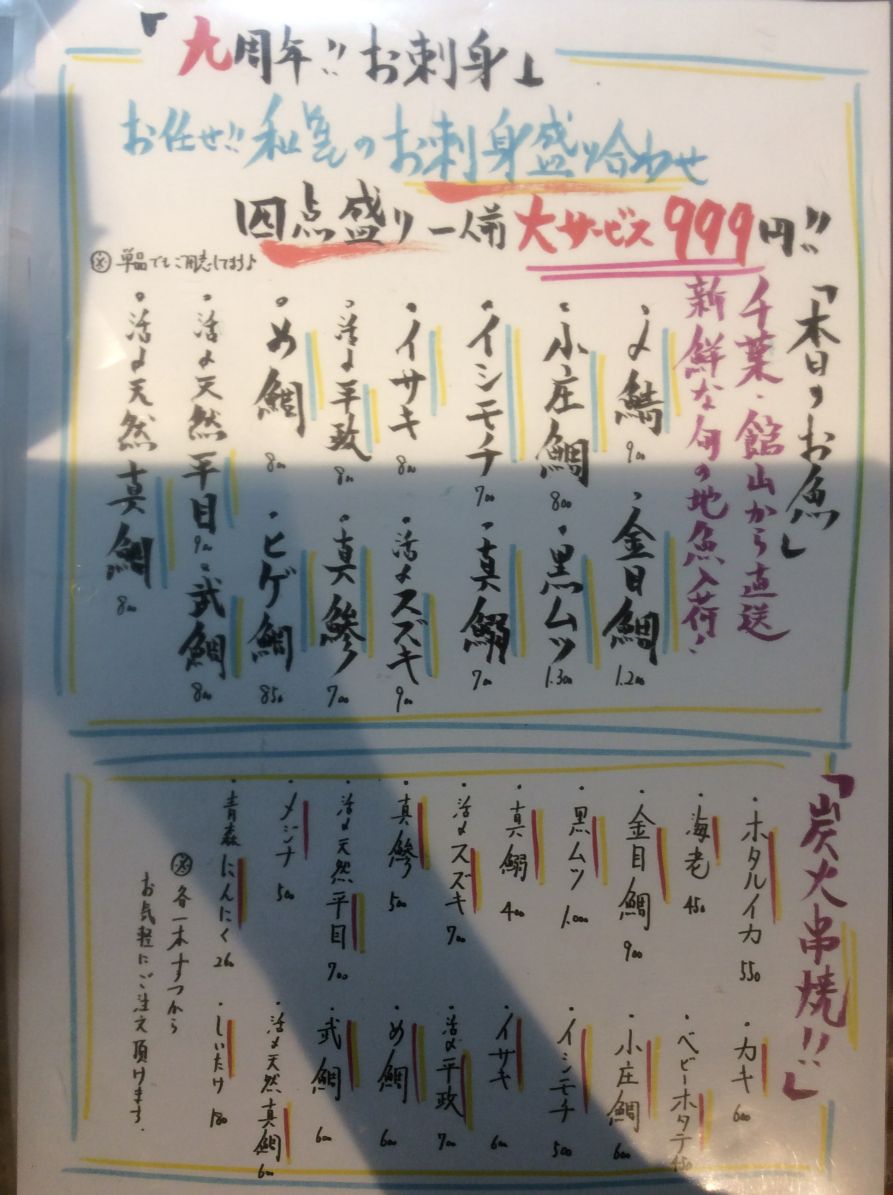 「九周年!! お刺身」
お任せ!! のお刺身盛り合わせ
四点盛り 一人前 大サービス 999円!!
※ 単品でもご用意してます♪
「本日のお魚」
千葉・館山から直送
新鮮な旬の地魚入荷!
・〆鯖 900
・金目鯛 1.200
・小庄鯛 800
・黒ムツ 1.300
・イシモチ 700
・真鰯 700
・イサキ 800
・活〆スズキ 900
・活〆平政 800
・真鯵 700
・め鯛 800
・ヒゲ鯛 850
・活〆天然平目 900
・武鯛 800
・活〆天然真鯛 800
「炭火串焼!!」
・ホタルイカ 550
・カキ 600
・海老 450
・ベビーホタテ 450
・金目鯛 900
・小庄鯛 600
・黒ムツ 1.000
・イシモチ 500
・真鰯 400
・イサキ 600
・活〆スズキ 700
・活〆平政 700
・真鯵 500
・め鯛 600
・活〆天然平目 700
・武鯛 600
・メジナ 500
・活〆天然真鯛 600
・青森にんにく 260
・しいたけ 180
※ 各一本ずつから
お気軽にご注文頂けます.